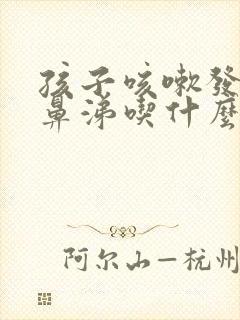 孩子咳嗽發
鼻涕喫什麼
阿尔山－杭州